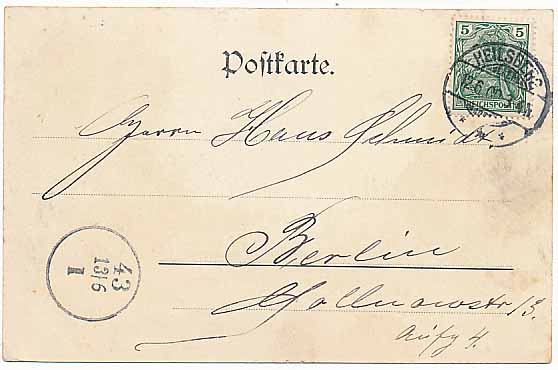 5 5
REICHSPOST
HEILSBERG
Postkarte.
Herrn Hans Schmidt,
Berlin
Gollnowstr 13.
Aufg 4.
43
13/6
I